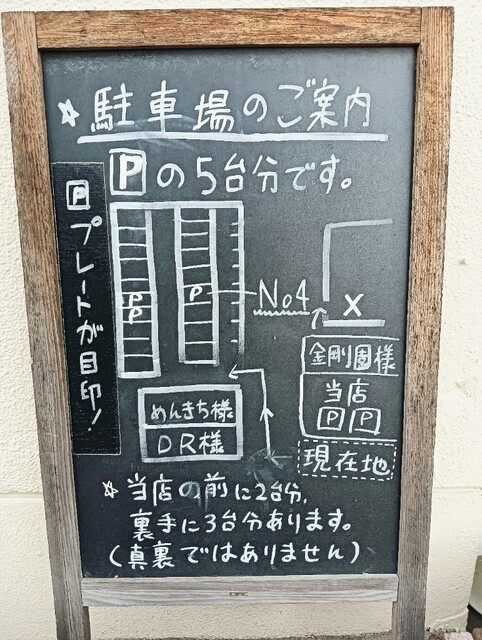 ☆駐車場のご案内
Pの5台分です。
Pプレートが目印!
P
P
P
No4
X
金剛園様
当店
P P
現在地
めんきち様
DR様
☆当店の前に2台分、
裏手に3台分あります。
(真裏ではありません)